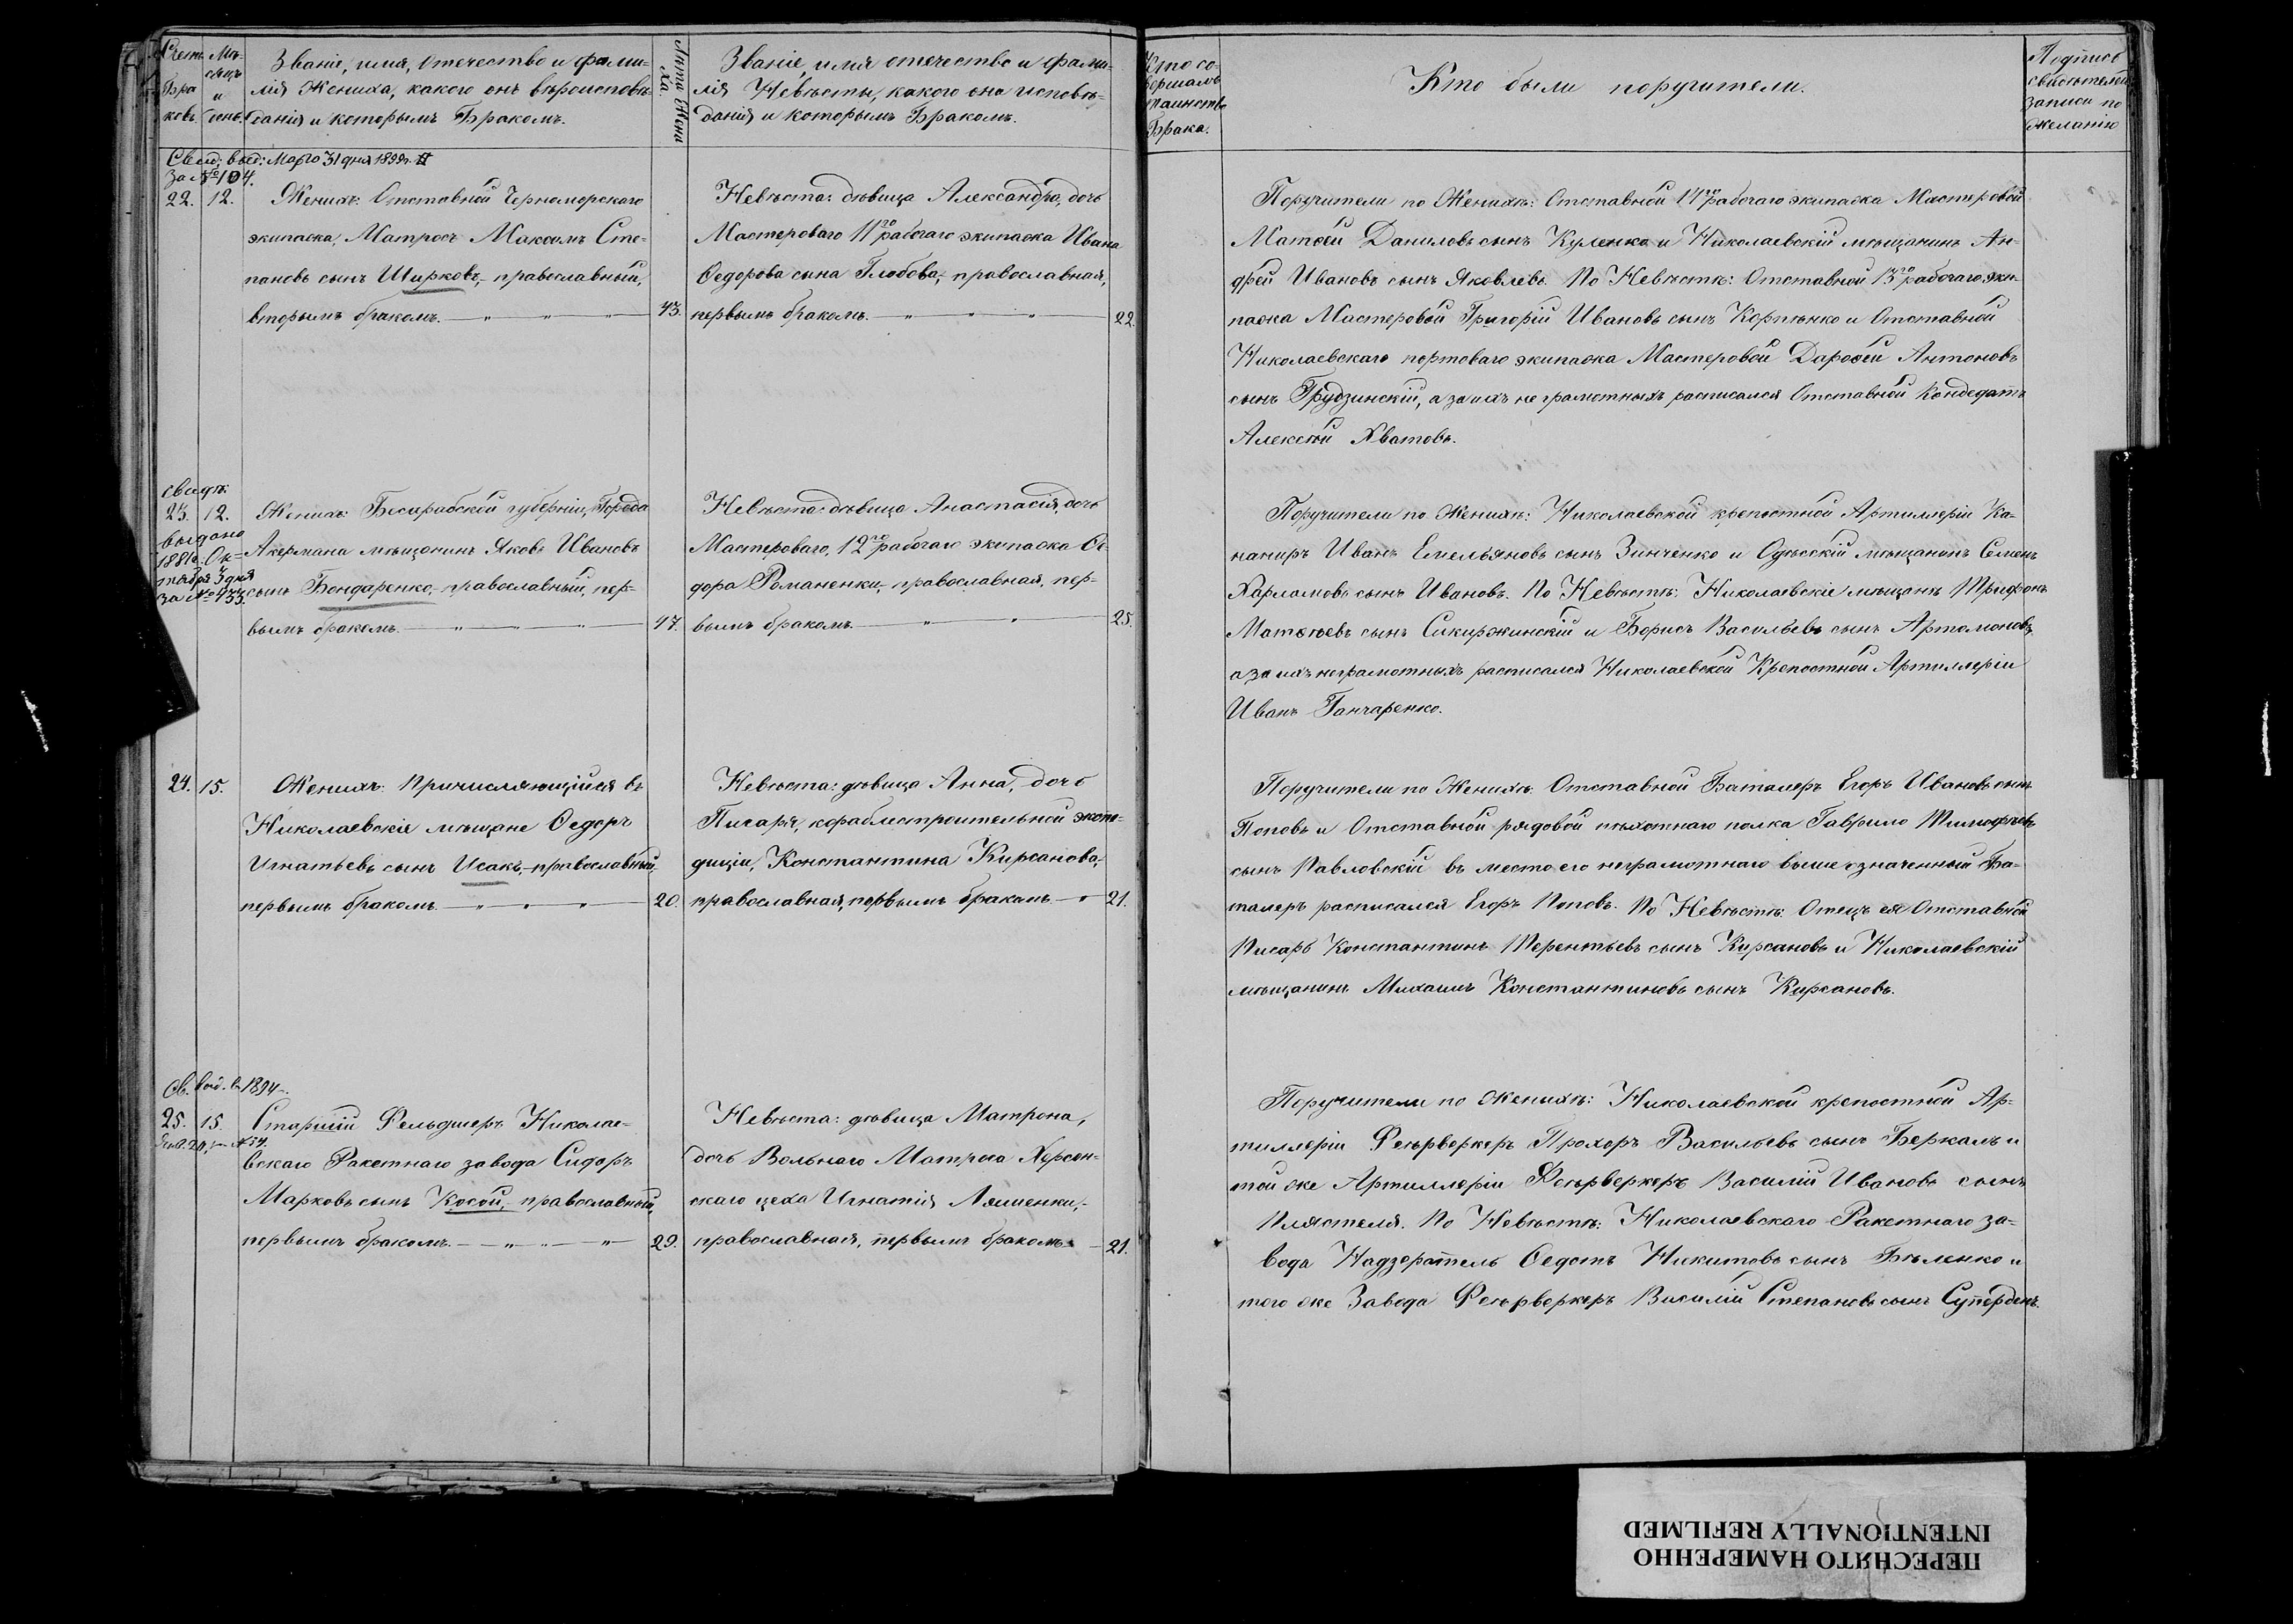 Счетъ Бра ковъ.
Мѣ- сяцъ и день.
Званіе, имя, отечество и фами-
лія Жениха, какого онъ вѣроисповѣ-
данія и которымъ Бракомъ.
Лѣта Жени ха.
Званіе, имя отечество и фами-
лія Невѣсты, какого она исповѣ-
данія и которымъ Бракомъ.
Кто со-
вершалъ
таинство
Брака.
Кто были поручители.
Подпись
свидѣтелей
записи по
желанію
Свид: выд: Марта 31 дня 1899г.
За № 104.
22. 12. Женихъ: Отставной Черноморскаго
экипажа, Матросъ Максимъ Сте-
пановъ сынъ Ширковъ,- православный,
вторымъ бракомъ. 43.
Невѣста: дѣвица Александра, дочь
Мастероваго 11го рабочаго экипажа Ивана
Ѳедорова сына Глобова,- православная,
первымъ бракомъ. 22.
Поручители по Женихѣ: Отставной 11го рабочаго экипажа Мастеровой
Матѳей Даниловъ сынъ Куленко и Николаевскій мѣщанинъ Ан-
дрей Ивановъ сынъ Яковлевъ. По Невѣстѣ: Отставной 13го рабочаго эки-
пажа Мастеровой Григорій Ивановъ сынъ Корпѣнко и Отставной
Николаевскаго портоваго экипажа Мастеровой Дароѳей Антоновъ
сынъ Грудзинскій, а за ихъ не грамотныхъ расписался Отставной Кондедатъ
Алексѣй Хватовъ.
свидѣ:
23. 12. Женихъ: Бесарабской губерніи, Города
выдано
1881г. Ок-
тября 3 дня
за № 733.
Акермана мѣщанинъ Яковъ Ивановъ
сынъ Бондаренко,- православный, пер-
вымъ бракомъ. 47.
Невѣста: дѣвица Анастасія, дочь
Мастероваго, 12го рабочаго экипажа Ѳе-
дора Романенки,- православная, пер-
вымъ бракомъ. 25.
Поручители по Женихѣ: Николаевской крепостной Артиллеріи Ка-
ниръ Иванъ Емельяновъ сынъ Зинченко и Одесскій мѣщанинъ Семенъ
Харламовъ сынъ Ивановъ. По Невѣстѣ: Николаевскіе мѣщане Трифонъ
Матѳѣевъ сынъ Сикиржинскій и Борисъ Васильевъ сынъ Артамоновъ,
а за ихъ неграмотныхъ расписался Николаевской Крепостной Артиллеріи
Иванъ Ганчаренко.
24. 15. Женихъ: Причисляющійся въ
Николаевскіе мѣщане Ѳедоръ
Игнатьевъ сынъ Исакъ,- православный,
первымъ бракомъ. 20.
Невѣста: дѣвица Анна, дочь
Писаря, кораблестроительной экспе-
диціи, Константина Кирсанова,-
православная, первымъ бракомъ. 21.
Поручители по Женихѣ: Отставной Баталеръ Егоръ Ивановъ сынъ
Поповъ и Отставной рядовой пѣхотнаго полка Гаврило Тимофѣевъ
сынъ Павловскій въ место его неграмотнаго выше означенный Ба-
талеръ расписался Егоръ Поповъ. По Невѣстѣ: Отецъ ея Отставной
Писарь Константинъ Терентьевъ сынъ Кирсановъ и Николаевскій
мѣщанинъ Михаилъ Константиновъ сынъ Кирсановъ.
Св. выд. въ 1894
25. 15. Старшій Фельдшеръ Николае-
вскаго Ракетнаго завода Сидоръ
Марковъ сынъ Косой,- православный,
первымъ бракомъ. 29.
Невѣста: дѣвица Матрона,
дочь Вольнаго Матроса Херсон-
скаго цеха Игнатія Ляшенки,-
православная, первымъ бракомъ. 21.
Поручители по Женихѣ: Николаевской крепостной Ар-
тиллеріи Феѣрверкеръ Прохоръ Васильевъ сынъ Беркалъ и
той же Артиллеріи Феѣрверкеръ Василій Ивановъ сынъ
Плястеля. По Невѣстѣ: Николаевскаго Ракетнаго за-
вода Надзератель Ѳедотъ Никитовъ сынъ Бѣленко и
того же Завода Феѣрверкеръ Василій Степановъ сынъ
ПЕРЕСНЯТО НАМЕРЕННО
INTENTIONALLY REFILMED